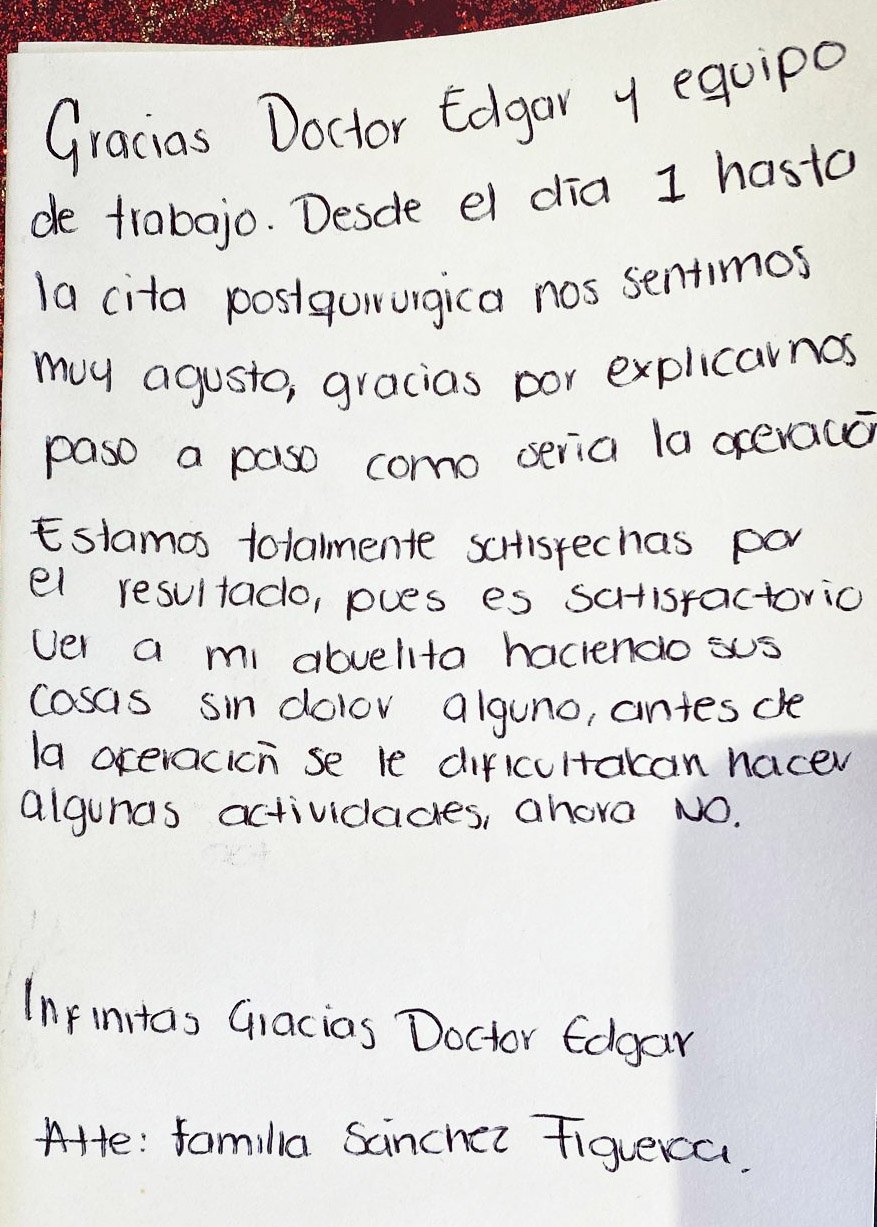 Gracias Doctor Edgar y equipo
de trabajo. Desde el día 1 hasta
la cita postquirurgica nos sentimos
muy agusto, gracias por explicarnos
paso a paso como sería la operació
Estamos totalmente satisfechas por
el resultado, pues es satisfactorio
ver a mi abuelita haciendo sus
cosas sin dolor alguno, antes de
la operación se le dificultaban hacer
algunas actividades, ahora NO.
Infinitas Gracias Doctor Edgar
Atte: familia Sánchez Figueroa.